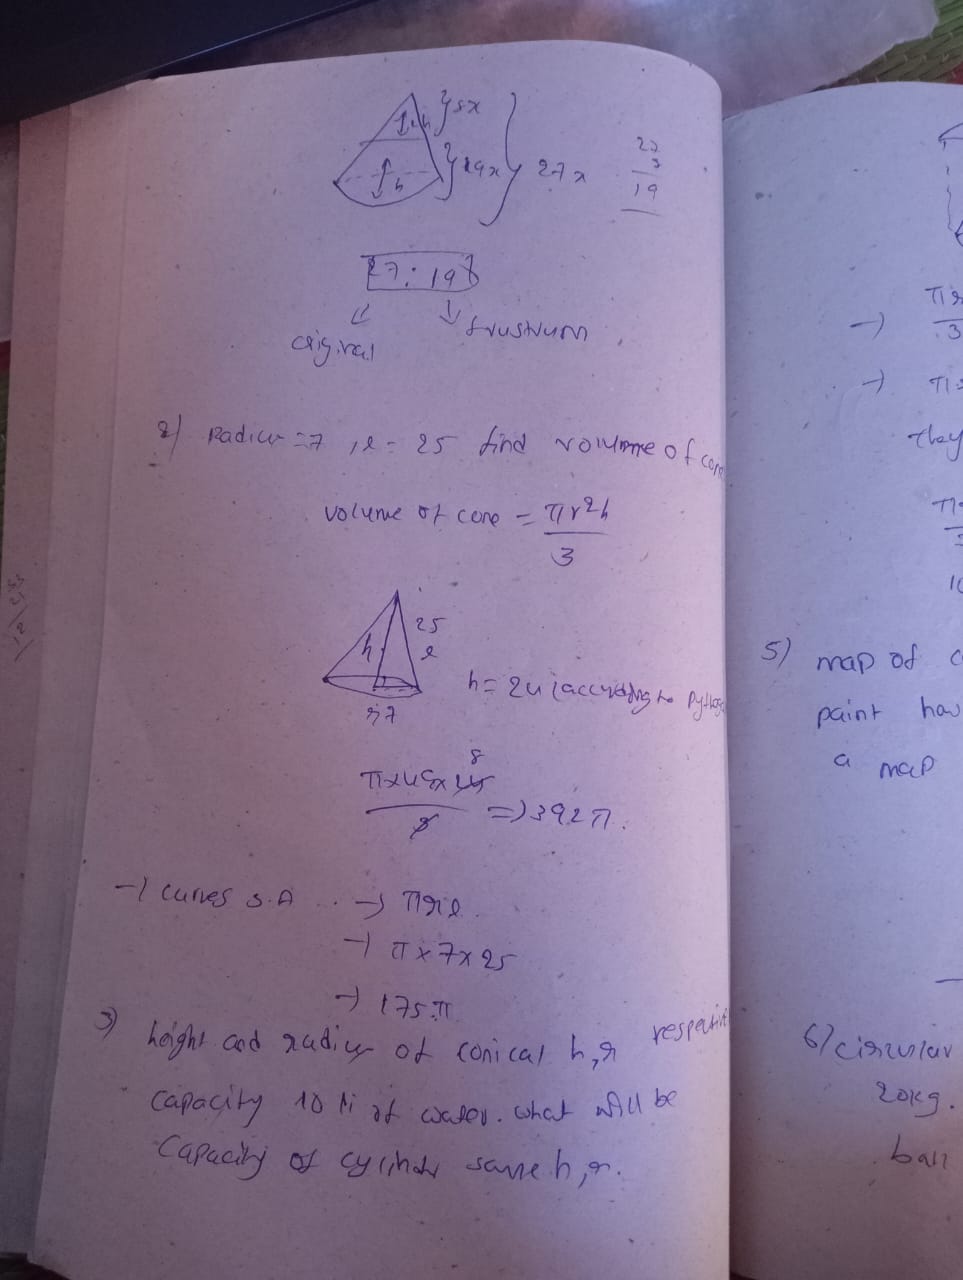 8x
19x
27x
27
19
27 : 19
original
frustrum
2) Radius = 7, l = 25 find volume of cone
volume of cone = πr²h
3
h
25
l
r 7
h = 24 (according to
8
π×49×24
3
=) 392π.
-) curves S.A -) πrl.
-) π×7×25
-) 175π
3) height and radius of conical h, r
capacity 10 li of water. what will be
Capacity of cylinder same h, r.
-)
3
-) π
they
5) map of
paint
a map
6) circular
20kg.
ball